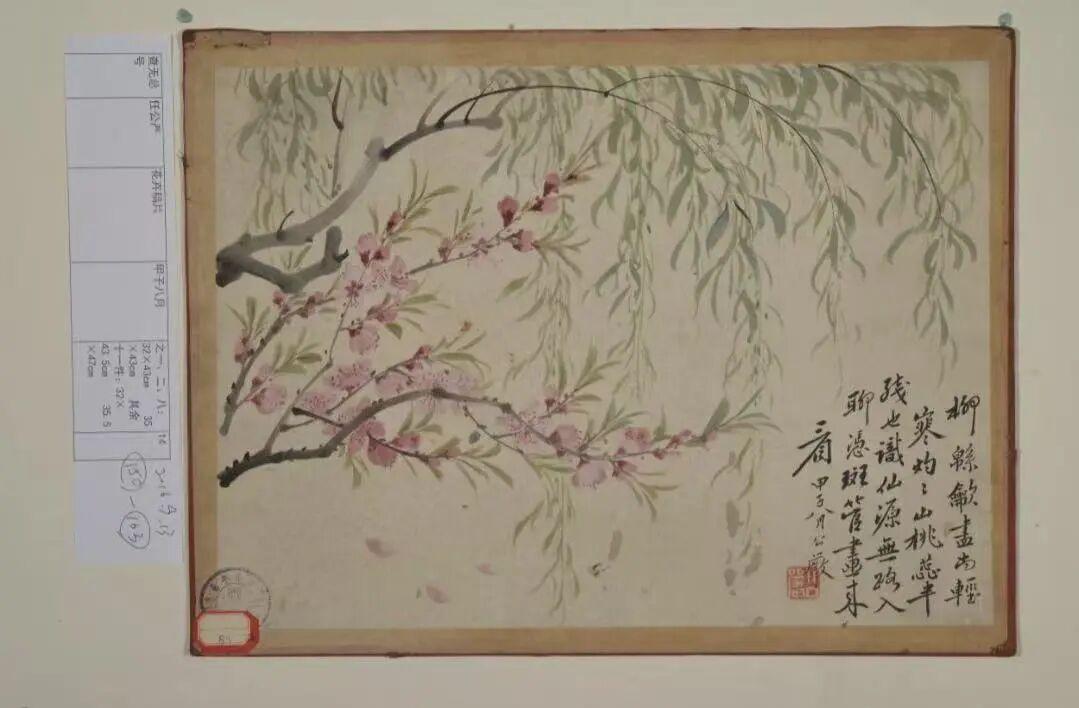 柳緜歛盡尚輕
寒灼〻山桃蕊半
殘也識仙源無路入
聊憑斑管畫来
看 甲子八月公嚴
查无总号
任公严
花卉稿片
甲子八月
之一、二、八:
32×43cm 35
×43cm 其余
十一件:32×
43.5cm 35.5
×47cm
14
150-163